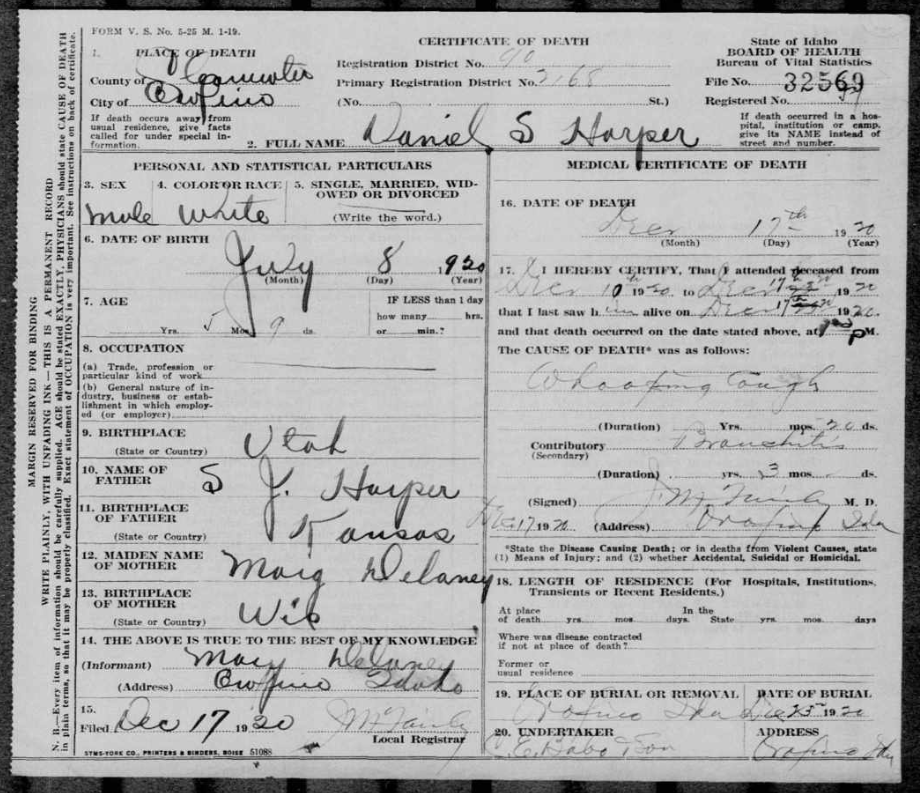 FORM V. S. No. 5-25 M. 1-19.
CERTIFICATE OF DEATH
State of Idaho
BOARD OF HEALTH
Bureau of Vital Statistics
1. PLACE OF DEATH
County of Clearwater
City of Orofino
Registration District No. 90
Primary Registration District No. 2168
(No. St.)
File No. 32569
Registered No.
If death occurs away from
usual residence, give facts
called for under special in-
formation.
If death occurred in a hos-
pital, institution or camp,
give its NAME instead of
street and number.
2. FULL NAME Daniel S Harper
PERSONAL AND STATISTICAL PARTICULARS
3. SEX
4. COLOR OR RACE
5. SINGLE, MARRIED, WID-
OWED OR DIVORCED
Male White
(Write the word.)
6. DATE OF BIRTH
July 8 1920
(Month) (Day) (Year)
7. AGE
IF LESS than 1 day
how many hrs.
Yrs. 5 Mos. 9 ds. or min.?
8. OCCUPATION
(a) Trade, profession or
particular kind of work
(b) General nature of in-
dustry, business or estab-
lishment in which employ-
ed (or employer)
9. BIRTHPLACE
(State or Country) Utah
10. NAME OF
FATHER S J. Harper
11. BIRTHPLACE
OF FATHER
(State or Country) Kansas
12. MAIDEN NAME
OF MOTHER Mary Delaney
13. BIRTHPLACE
OF MOTHER
(State or Country) Wis
14. THE ABOVE IS TRUE TO THE BEST OF MY KNOWLEDGE
(Informant) Mary Delaney
(Address) Orofino Idaho
15.
Filed Dec 17 1920 J M Fairly
Local Registrar
SYMS-YORK CO., PRINTERS & BINDERS, BOISE 51088
MEDICAL CERTIFICATE OF DEATH
16. DATE OF DEATH
Dec 17th 1920
(Month) (Day) (Year)
17. I HEREBY CERTIFY, That I attended deceased from
Dec 10th 1920 to Dec 17th 1920
that I last saw him alive on Dec 17th 1920
and that death occurred on the date stated above, at P M.
The CAUSE OF DEATH* was as follows:
Whooping Cough
(Duration) Yrs. mos. 20 ds.
Contributory Bronchitis
(Secondary)
(Duration) yrs. 3 mos. ds.
(Signed) J. M Fairly M. D.
Dec 17 1920 (Address) Orofino Ida
*State the Disease Causing Death; or in deaths from Violent Causes, state
(1) Means of Injury; and (2) whether Accidental, Suicidal or Homicidal.
18. LENGTH OF RESIDENCE (For Hospitals, Institutions,
Transients or Recent Residents.)
At place In the
of death yrs. mos. days. State yrs. mos. days
Where was disease contracted
if not at place of death?
Former or
usual residence
19. PLACE OF BURIAL OR REMOVAL
DATE OF BURIAL
Orofino Ida Dec 1920
20. UNDERTAKER
ADDRESS
Son Orofino Ida
MARGIN RESERVED FOR BINDING
WRITE PLAINLY, WITH UNFADING INK—THIS IS A PERMANENT RECORD
N. B.—Every item of information should be carefully supplied. AGE should be stated EXACTLY, PHYSICIANS should state CAUSE OF DEATH
in plain terms, so that it may be properly classified. Exact statement of OCCUPATION is very important. See instructions on back of certificate.